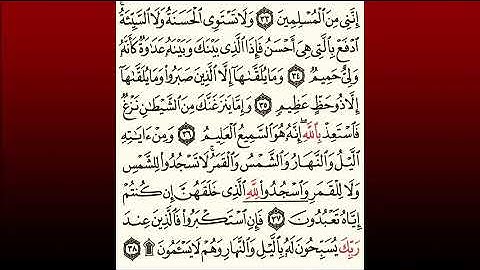 إِنَّنِى مِنَ ٱلْمُسْلِمِينَ ٣٣ وَلَا تَسْتَوِى ٱلْحَسَنَةُ وَلَا ٱلسَّيِّئَةُ
ٱدْفَعْ بِٱلَّتِى هِىَ أَحْسَنُ فَإِذَا ٱلَّذِى بَيْنَكَ وَبَيْنَهُۥ عَدَٰوَةٌ كَأَنَّهُۥ
وَلِىٌّ حَمِيمٌ ٣٤ وَمَا يُلَقَّىٰهَآ إِلَّا ٱلَّذِينَ صَبَرُوا۟ وَمَا يُلَقَّىٰهَآ
إِلَّا ذُو حَظٍّ عَظِيمٍ ٣٥ وَإِمَّا يَنزَغَنَّكَ مِنَ ٱلشَّيْطَٰنِ نَزْغٌ
فَٱسْتَعِذْ بِٱللَّهِ ۖ إِنَّهُۥ هُوَ ٱلسَّمِيعُ ٱلْعَلِيمُ ٣٦ وَمِنْ ءَايَٰتِهِ
ٱلَّيْلُ وَٱلنَّهَارُ وَٱلشَّمْسُ وَٱلْقَمَرُ ۚ لَا تَسْجُدُوا۟ لِلشَّمْسِ
وَلَا لِلْقَمَرِ وَٱسْجُدُوا۟ لِلَّهِ ٱلَّذِى خَلَقَهُنَّ إِن كُنتُمْ
إِيَّاهُ تَعْبُدُونَ ٣٧ فَإِنِ ٱسْتَكْبَرُوا۟ فَٱلَّذِينَ عِندَ
رَبِّكَ يُسَبِّحُونَ لَهُۥ بِٱلَّيْلِ وَٱلنَّهَارِ وَهُمْ لَا يَسْـَٔمُونَ ۩ ٣٨